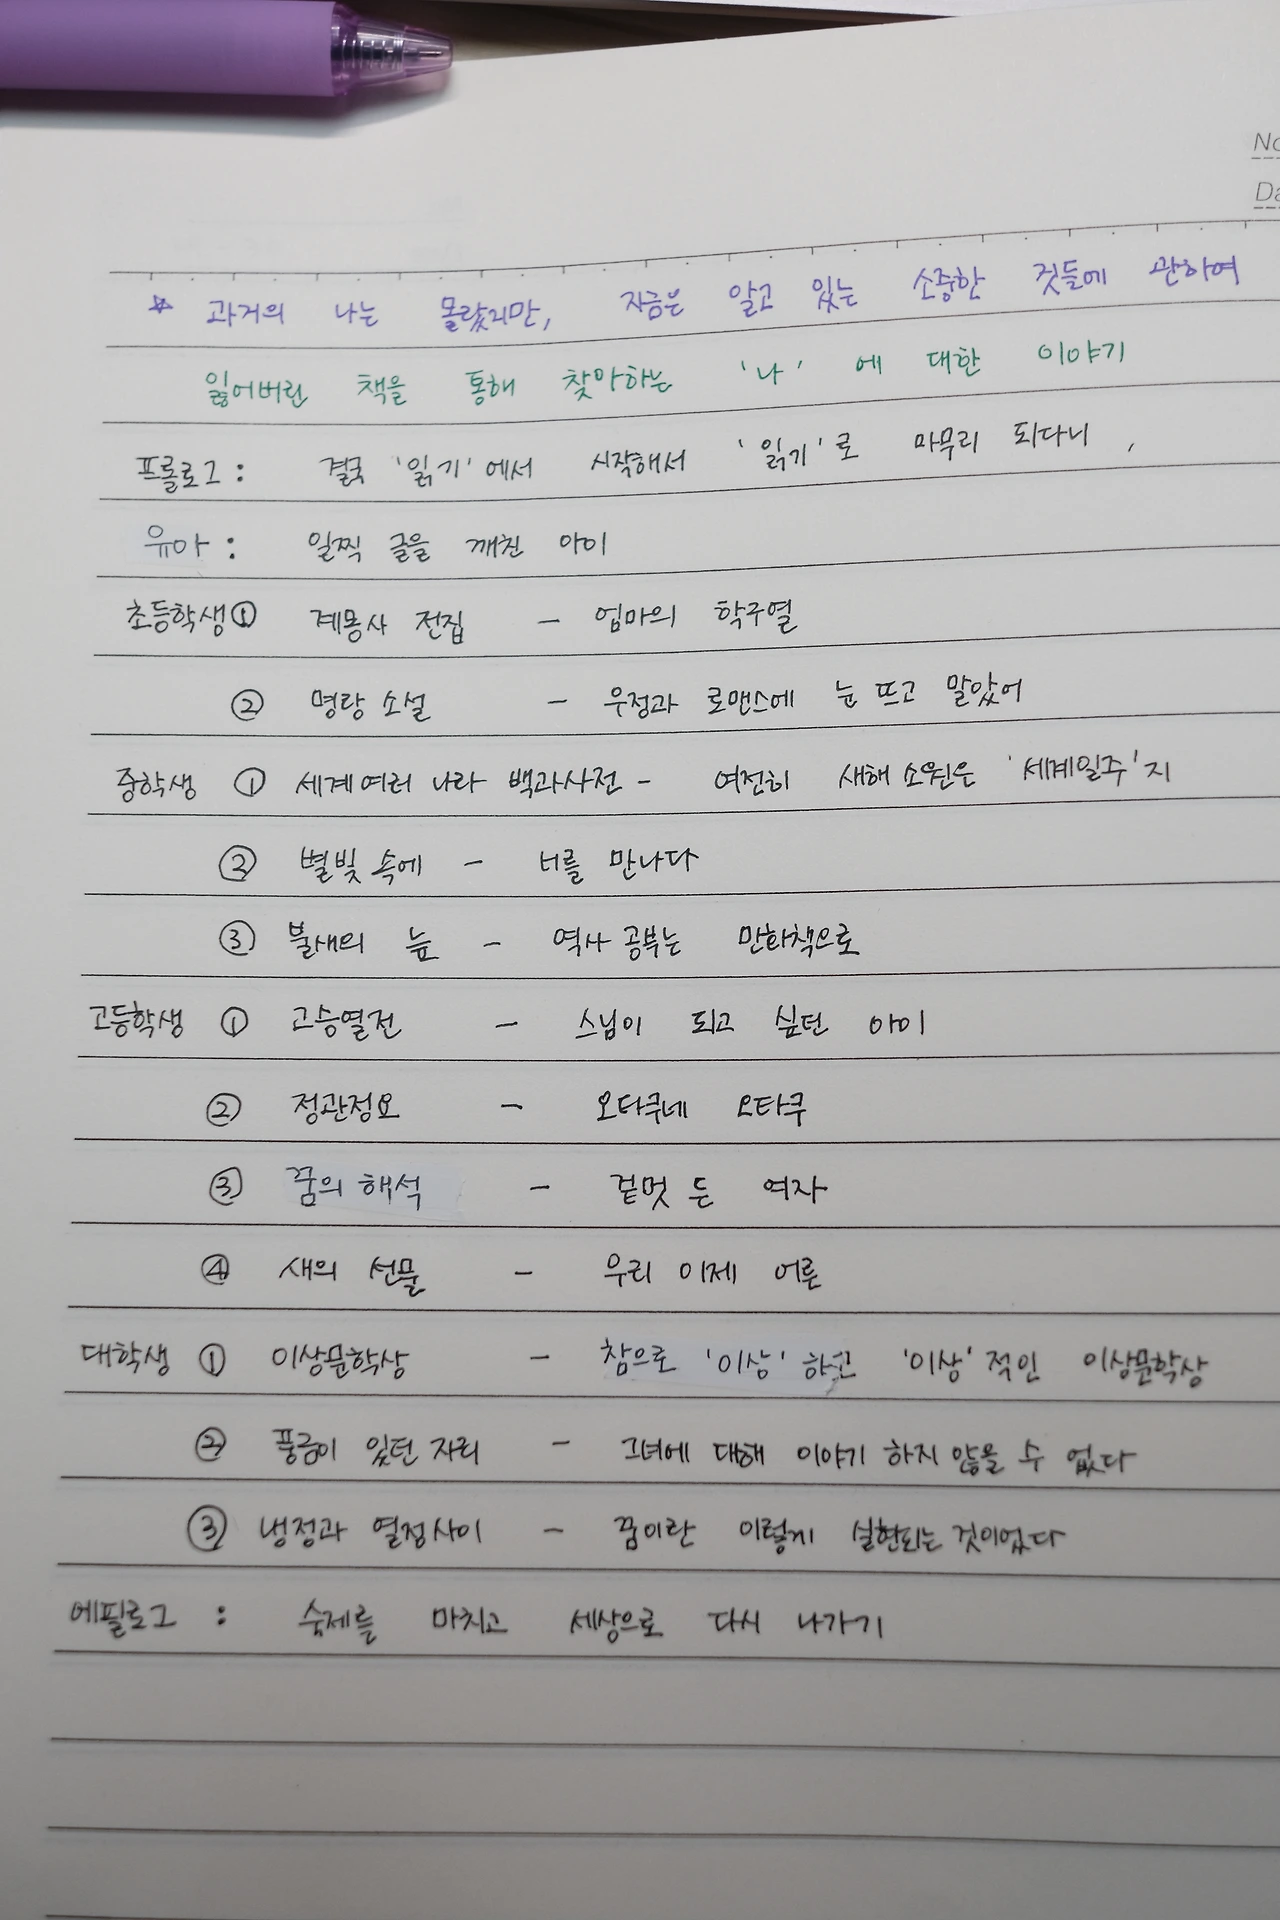 No
Da
* 과거의 나는 몰랐지만, 지금은 알고 있는 소중한 것들에 관하여
잃어버린 책을 통해 찾아하는 '나' 에 대한 이야기
프롤로그 : 결국 '읽기' 에서 시작해서 '읽기' 로 마무리 되다니,
유아 : 일찍 글을 깨친 아이
초등학생 ① 계몽사 전집 - 엄마의 학구열
② 명랑 소설 - 우정과 로맨스에 눈 뜨고 말았어
중학생 ① 세계 여러 나라 백과사전 - 여전히 새해 소원은 '세계일주' 지
② 별빛 속에 - 너를 만나다
③ 불새의 늪 - 역사 공부는 만화책으로
고등학생 ① 고승열전 - 스님이 되고 싶던 아이
② 정관정요 - 오타쿠네 오타쿠
③ 꿈의 해석 - 겉멋 든 여자
④ 새의 선물 - 우리 이제 어른
대학생 ① 이상문학상 - 참으로 '이상' 하고 '이상' 적인 이상문학상
② 풍금이 있던 자리 - 그녀에 대해 이야기 하지 않을 수 없다
③ 냉정과 열정사이 - 꿈이란 이렇게 실현되는 것이었다
에필로그 : 숙제를 마치고 세상으로 다시 나가기